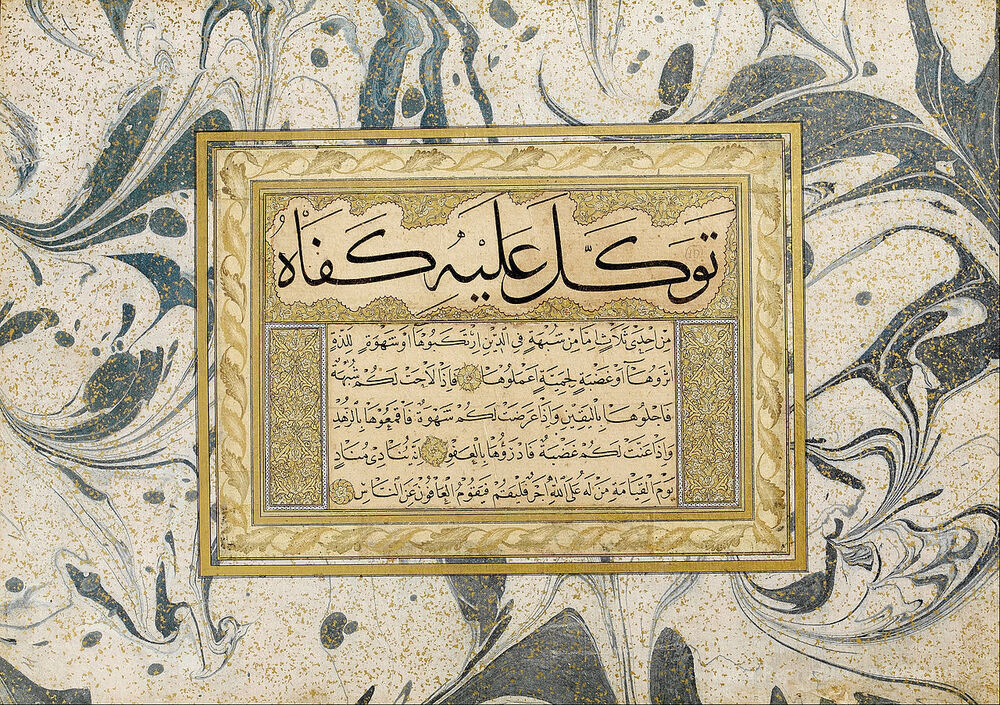 تَوَكَّلَ عَلَيْهِ كَفَاهُ
مِنْ اِحْدٰى ثَلَاثٍ اِمَّا مِنْ شُبْهَةٍ فِى الدِّينِ اِرْتَكَبُوهَا اَوْ شَهْوَةٍ لِلَذَّةٍ
اٰثَرُوهَا اَوْ غَضْبَةٍ لِحَمِيَّةٍ اَعْمَلُوهَا فَاِذَا لَاحَتْ لَكُمْ شُبْهَةٌ
فَاجْلُوهَا بِالْيَقِينِ وَاِذَا عَرَضَتْ لَكُمْ شَهْوَةٌ فَاقْمَعُوهَا بِالزُّهْدِ
وَاِذَا عَنَّتْ لَكُمْ غَضْبَةٌ فَادْرَؤُهَا بِالْعَفْوِ اِنَّهُ يُنَادِى مُنَادٍ
يَوْمَ الْقِيَامَةِ مَنْ لَهُ عَلَى اللّٰهِ اَجْرٌ فَلْيَقُمْ فَيَقُومُ الْعَافُونَ عَنِ النَّاسِ